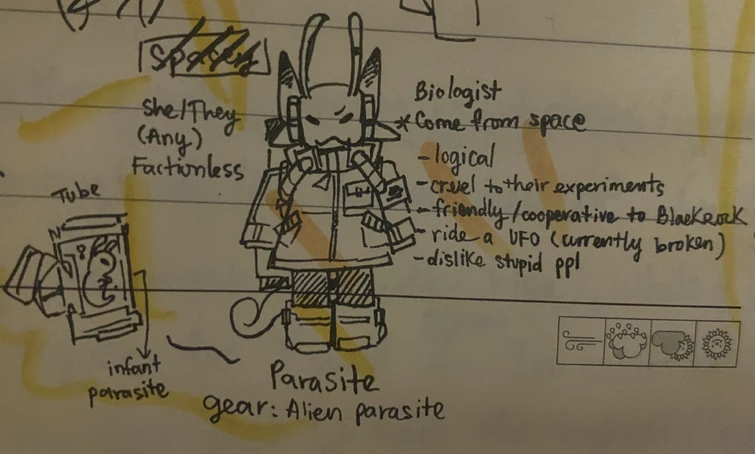 She/They
(Any)
Factionless
Biologist
* Come from space
- logical
- cruel to their experiments
- friendly/cooperative to Blackrock
- ride a UFO (currently broken)
- dislike stupid ppl
Tube
infant
parasite
Parasite
gear: Alien parasite